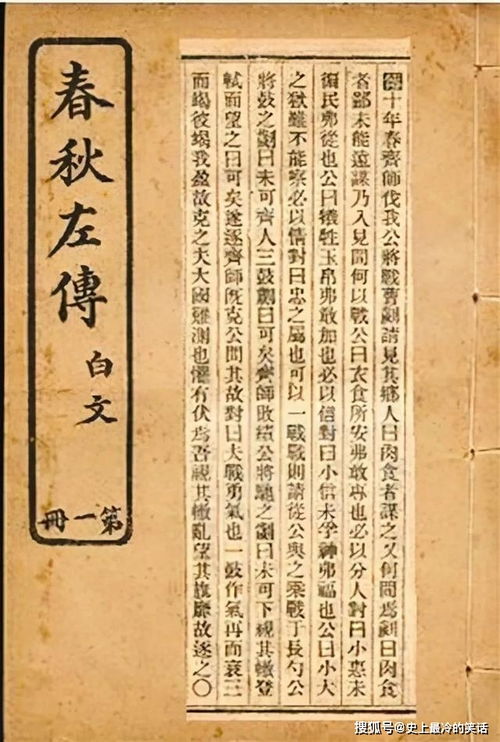 十年春齊師伐我公將戰曹劌請見其鄉人曰肉食者謀之又何間焉劌曰肉食
者鄙未能遠謀乃入見問何以戰公曰衣食所安弗敢專也必以分人對曰小惠未
徧民弗從也公曰犧牲玉帛弗敢加也必以信對曰小信未孚神弗福也公曰小大
之獄雖不能察必以情對曰忠之屬也可以一戰戰則請從公與之乘戰于長勺公
將鼓之劌曰未可齊人三鼓劌曰可矣齊師敗績公將馳之劌曰未可下視其轍登
軾而望之曰可矣遂逐齊師既克公問其故對曰夫戰勇氣也一鼓作氣再而衰三
而竭彼竭我盈故克之夫大國難測也懼有伏焉吾視其轍亂望其旗靡故逐之〇
春秋左傳
白文
第一冊
搜狐号@史上最冷的笑话